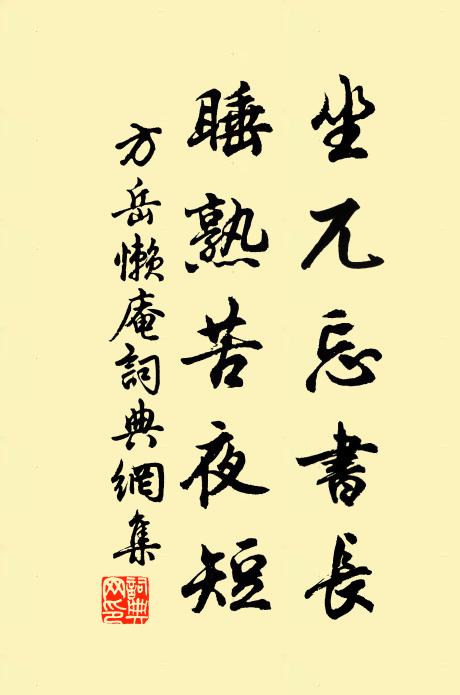 坐兀忘書長
睡熟苦夜短
方岳懶庵詞典網集
詞典網印